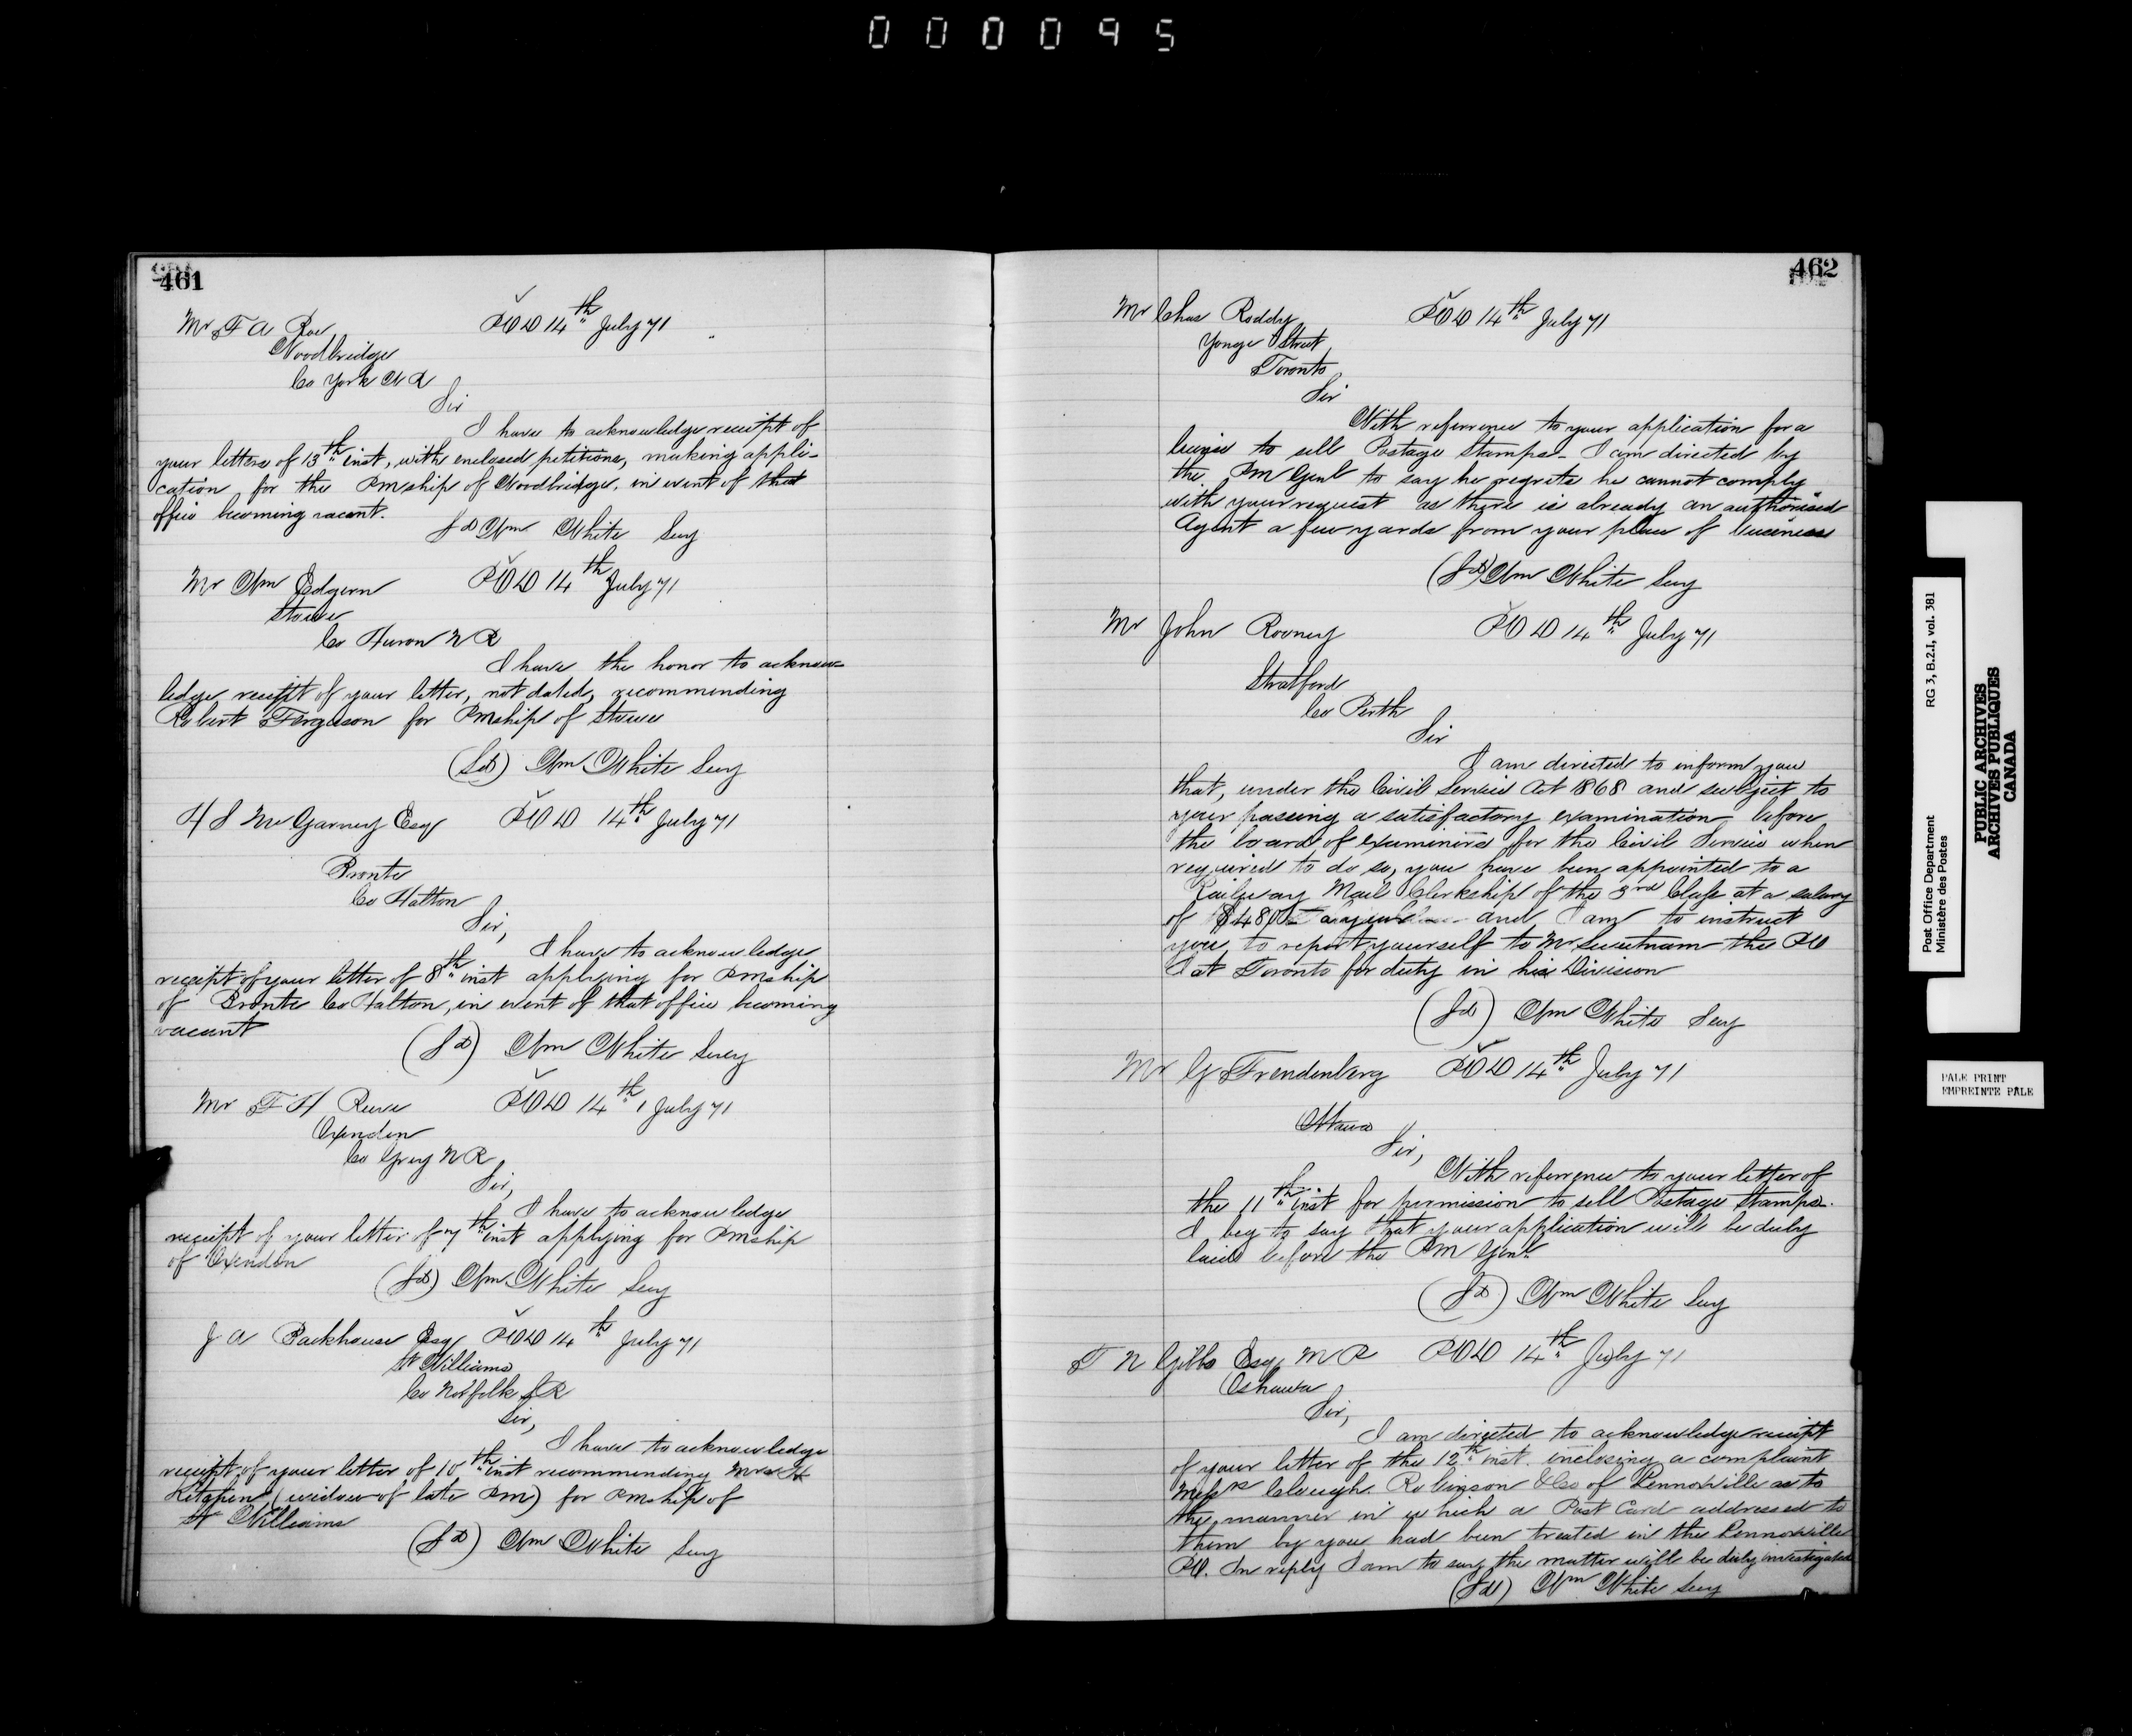 000095
461
Mr F A Roe POD 14th July 71
Woodbridge
Co York W R
Sir
I have to acknowledge receipt of
your letters of 13th inst, with enclosed petitions, making appli-
cation for the Pmship of Woodbridge, in event of that
office becoming vacant.
Sd Wm White Secy
Mr Wm POD 14th July 71
Co Huron N R
I have the honor to acknow-
ledge receipt of your letter, not dated, recommending
Robert Ferguson for Pmship of
(Sd) Wm White Secy
H S McGarney Esq POD 14th July 71
Bronte
Co Halton
Sir,
I have to acknowledge
receipt of your letter of 8th inst applying for Pmship
of Bronte Co Halton, in event of that office becoming
vacant
(Sd) Wm White Secy
Mr F H POD 14th July 71
Oxenden
Co Grey N R
Sir,
I have to acknowledge
receipt of your letter of 7th inst applying for Pmship
of Oxenden
(Sd) Wm White Secy
J A Backhouse Esq POD 14th July 71
St Williams
Co Norfolk S R
Sir,
I have to acknowledge
receipt of your letter of 10th inst recommending Mrs
(widow of late Pm) for Pmship of
St Williams
(Sd) Wm White Secy
462
Mr Chas Roddy POD 14th July 71
Yonge Street
Toronto
Sir
With reference to your application for a
license to sell Postage Stamps - I am directed by
the Pm Genl to say he regrets he cannot comply
with your request as there is already an authorised
Agent a few yards from your place of business
(Sd) Wm White Secy
Mr John Rooney POD 14th July 71
Stratford
Co Perth
Sir
I am directed to inform you
that, under the Civil Service Act 1868 and subject to
your passing a satisfactory examination before
the board of examiners for the Civil Service when
required to do so, you have been appointed to a
Railway Mail Clerkship of the 3rd Class at a salary
of $480 and I am to instruct
you to report yourself to Mr Sweetnam the PO
I at Toronto for duty in his Division
(Sd) Wm White Secy
Mr G Frendenberg POD 14th July 71
Ottawa
Sir,
With reference to your letter of
the 11th inst for permission to sell Postage Stamps.
I beg to say that your application will be duly
laid before the Pm Genl
(Sd) Wm White Secy
T N Gibbs Esq M P POD 14th July 71
Oshawa
Sir,
I am directed to acknowledge receipt
of your letter of the 12th inst. inclosing a complaint
Messrs Clough Robinson & Co of Lennoxville as to
the manner in which a Post Card addressed to
them by you had been treated in the Lennoxville
PO. In reply I am to say the matter will be duly investigated
(Sd) Wm White Secy
Post Office Department RG 3, B.2.I, vol. 381
Ministère des Postes
PUBLIC ARCHIVES
ARCHIVES PUBLIQUES
CANADA
PALE PRINT
EMPREINTE PALE